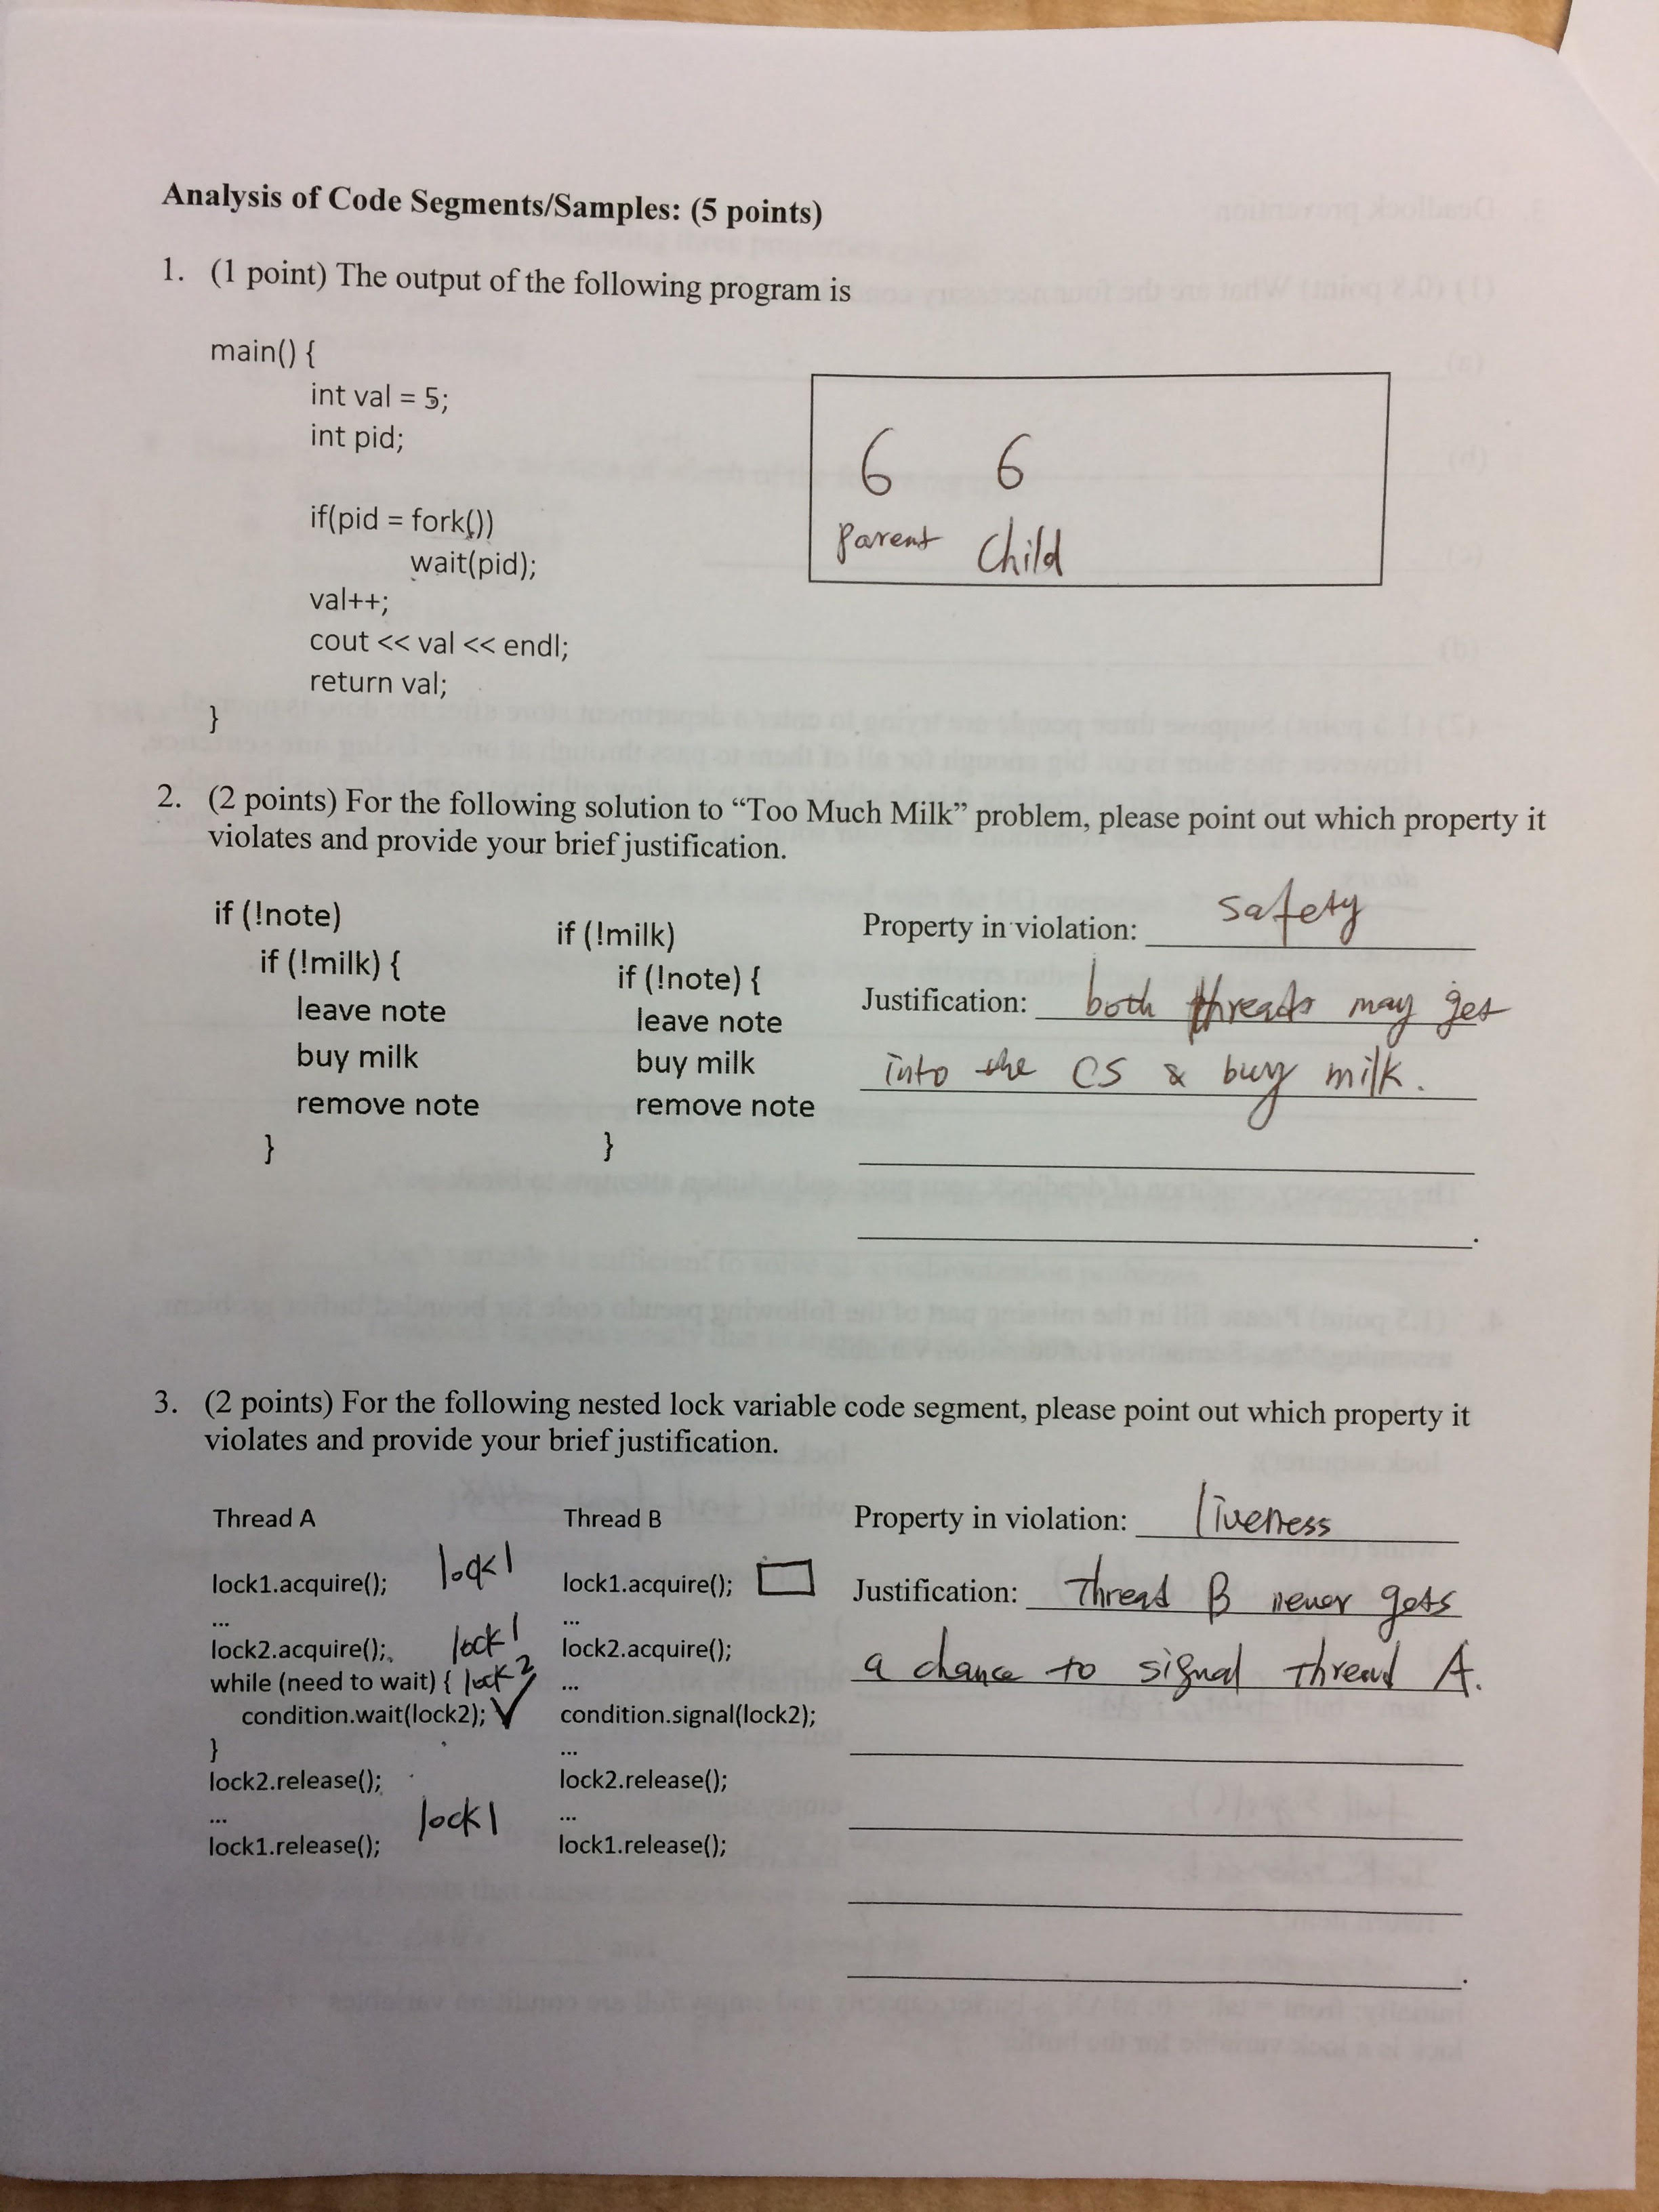 Analysis of Code Segments/Samples: (5 points)
1. (1 point) The output of the following program is
main() {
int val = 5;
int pid;
if(pid = fork())
wait(pid);
val++;
cout << val << endl;
return val;
}
6 6
Parent Child
2. (2 points) For the following solution to “Too Much Milk” problem, please point out which property it
violates and provide your brief justification.
if (!note)
if (!milk) {
leave note
buy milk
remove note
}
if (!milk)
if (!note) {
leave note
buy milk
remove note
}
Property in violation: safety
Justification: both threads may get
into the CS & buy milk.
3. (2 points) For the following nested lock variable code segment, please point out which property it
violates and provide your brief justification.
Thread A
lock1.acquire(); lock1
...
lock2.acquire(); lock1
while (need to wait) { lock2
condition.wait(lock2); ✓
}
lock2.release();
... lock1
lock1.release();
Thread B
lock1.acquire();
...
lock2.acquire();
...
condition.signal(lock2);
...
lock2.release();
...
lock1.release();
Property in violation: liveness
Justification: Thread B never gets
a chance to signal thread A.